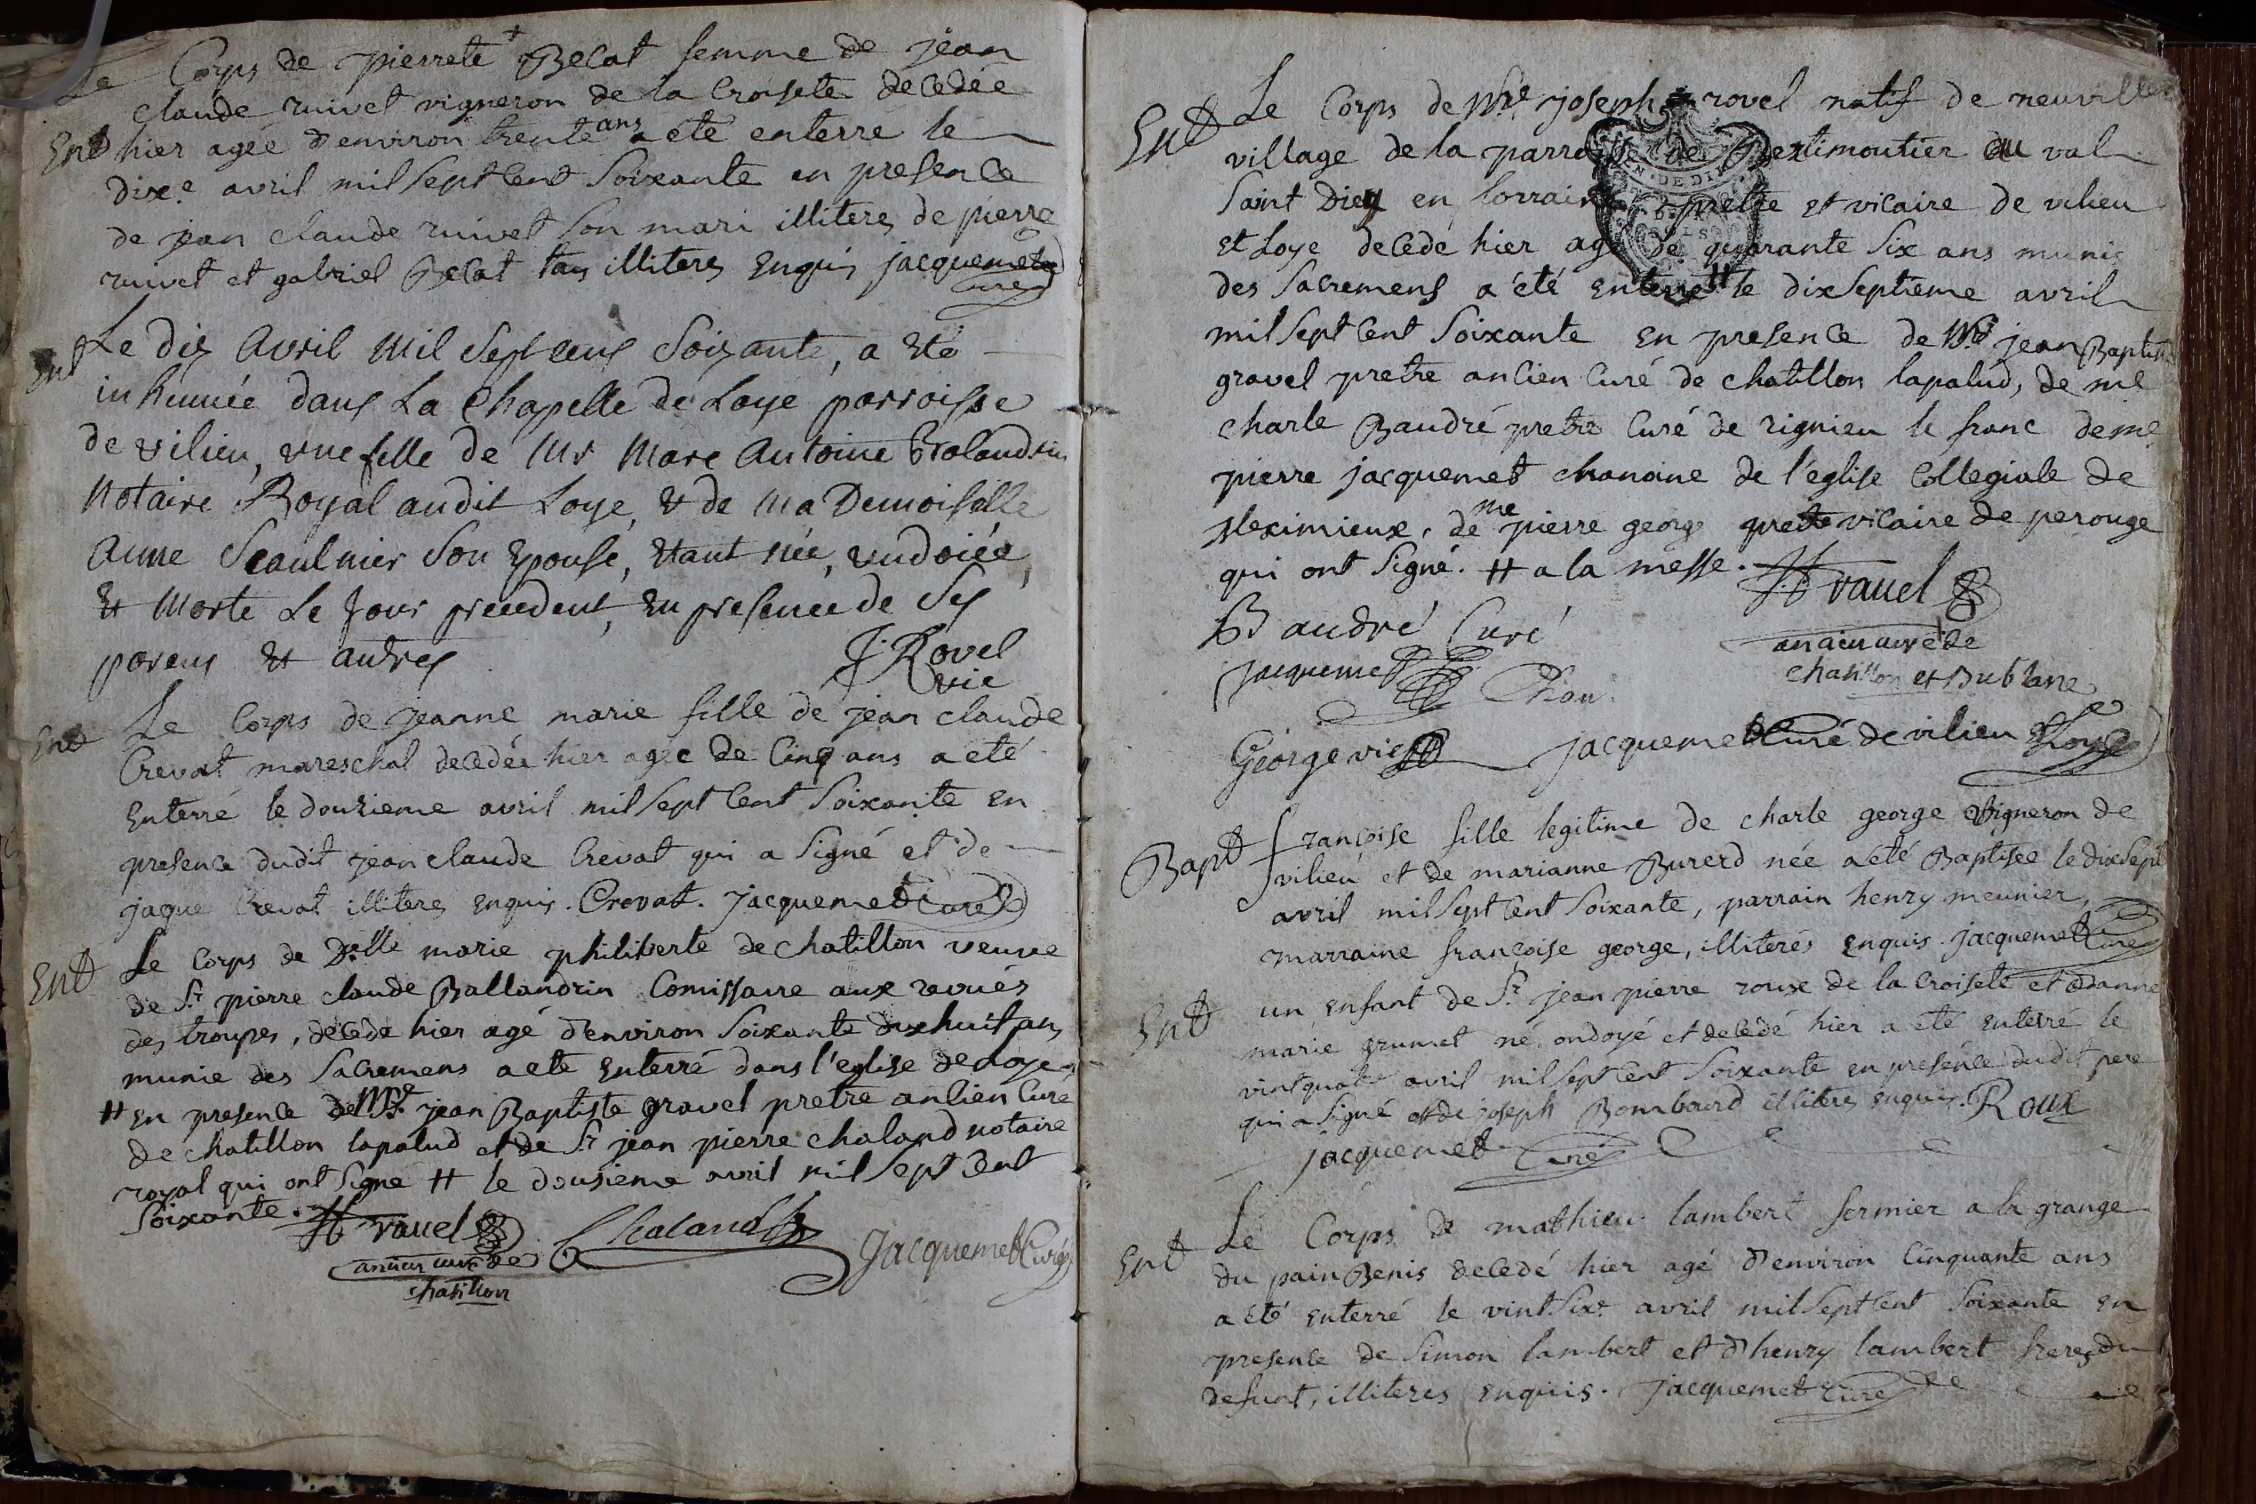 Le Corps de pierrete + Becat femme de jean
claude ruivet vigneron de la Croisete decedée
Ent hier agée d'environ trente ans a eté enterré le
dixe. avril mil sept Cent Soixante en presence
de jean claude ruivet son mari illiteré de pierre
ruivet et gabriel Becat tous illiteres Enquis jacquemet
Curé
Ent Le dix Avril Mil Sept cens Soixante, a Eté
inhumée dans La Chapelle de Loye parroisse
de vilieu, une fille de Mr Marc Antoine Brolandrin
Notaire Royal audit Loye, & de Ma Demoiselle
Anne Seaulnier Son Epouse, Etant née, undoiée,
Et Morte Le Jour precedent, En presence de Ses
parens Et autres
J. Rovel
vic
Ent Le Corps de jeanne marie fille de jean claude
Crevat mareschal decedée hier agée de Cinq ans a eté
Enterré le douzieme avril mil sept Cent Soixante en
presence dudit jean claude Crevat qui a Signé et de
jaque Crevat illiteres enquis. Crevat. jacquemet Curé
Ent Le Corps de Delle marie philiberte de chatillon veuve
de Sr pierre claude Ballandrin Comissaire aux revués
des troupes, decedé hier agé d'environ Soixante dix huit ans
munie des Sacremens a eté Enterré dans l'eglise de Loye
# En presence de Mre jean Baptiste gravel pretre ancien Curé
de chatillon lapalud et de Sr jean pierre chaland notaire
royal qui ont Signé # le dousieme avril mil Sept Cent
Soixante.
Gravel
ancien curé de
chatillon
Chaland
Jacquemet Curé
Ent Le Corps de Mre joseph rovel natif de neuviller
village de la parroisse de Bertimoutier au val
Saint Diey en Lorraine pretre et vicaire de vilieu
et Loye decedé hier agé de quarante Six ans munis
des Sacremens a été enterré # le dixseptieme avril
mil sept Cent Soixante En presence de Mre jean Baptiste
gravel pretre ancien Curé de chatillon lapalud, de me
charle Baudré pretre Curé de rignieu le franc de me
pierre jacquemet chanoine de l'eglise Collegiale de
Meximieux, de me pierre george pretre vicaire de perouge
qui ont Signé. # a la messe.
Gravel
ancien curé de
chatillon et Dublane
Baudré Curé
jacquemet Chan.
George vic
jacquemet Curé de vilieu et Loye
Bapt françoise fille legitime de charle george vigneron de
vilieu et de marianne Burerd née a eté Baptisée le dix Sept
avril mil Sept Cent Soixante, parrain henry meunier,
marraine françoise george, illiterés enquis. jacquemet Curé
Ent un enfant de Sr jean pierre roux de la Croisete et danne
marie grumet né, ondoyé et decedé hier a eté enterré le
vint quatre avril mil Sept Cent Soixante en presence dudit pere
qui a Signé et de joseph Bombourd illiteré enquis. Roux
jacquemet Curé
Ent Le Corps de mathieu lambert fermier a la grange
du pain Benis decedé hier agé d'environ Cinquante ans
a eté enterré le vint Sixe. avril mil Sept Cent Soixante en
presence de Simon lambert et d'henry lambert freres du
defunt, illiteres enquis. jacquemet Curé